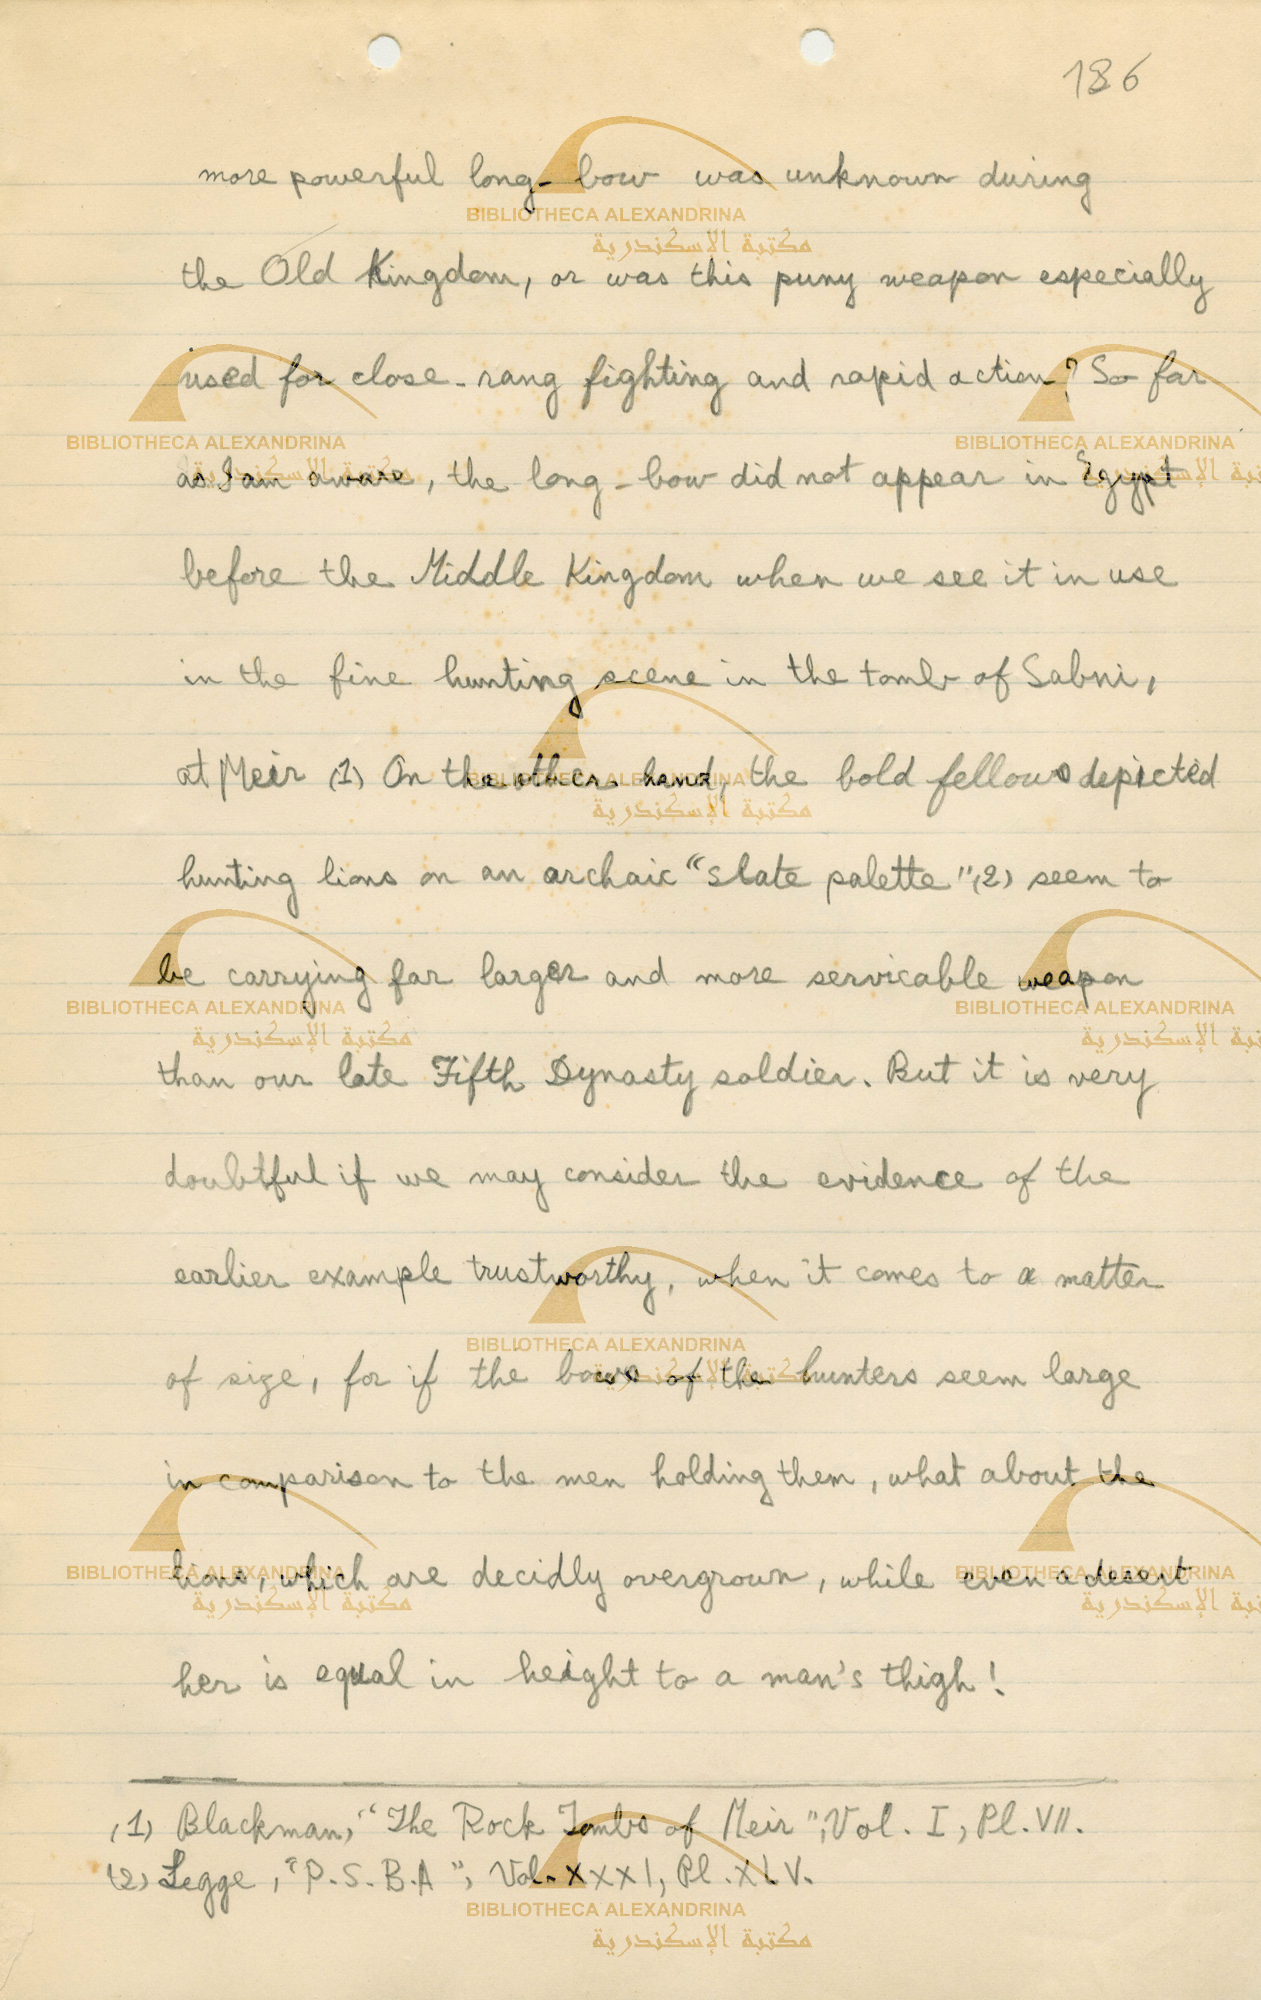 186
more powerful long-bow was unknown during
the Old Kingdom, or was this puny weapon especially
used for close-rang fighting and rapid action? So far
as I am aware, the long-bow did not appear in Egypt
before the Middle Kingdom when we see it in use
in the fine hunting scene in the tomb of Sabni,
at Meir (1) On the other hand, the bold fellows depicted
hunting lions on an archaic "slate palette" (2) seem to
be carrying far larger and more servicable weapon
than our late Fifth Dynasty soldier. But it is very
doubtful if we may consider the evidence of the
earlier example trustworthy, when it comes to a matter
of size, for if the bows of the hunters seem large
in comparison to the men holding them, what about the
lions, which are decidly overgrown, while even a desert
her is equal in height to a man's thigh!
(1) Blackman, "The Rock Tombs of Meir", Vol. I, Pl. VII.
(2) Legge, "P.S.B.A", Vol. XXXI, Pl. XLV.
BIBLIOTHECA ALEXANDRINA
مكتبة الإسكندرية